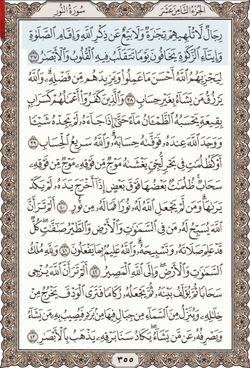 الجزء الثامن عشر سورة النور
رجال لا تلهيهم تجارة ولا بيع عن ذكر الله وإقام الصلوة
وإيتاء الزكوة يخافون يوما تتقلب فيه القلوب والأبصر ٣٧
ليجزيهم الله أحسن ما عملوا ويزيدهم من فضله والله
يرزق من يشاء بغير حساب ٣٨ والذين كفروا أعملهم كسراب
بقيعة يحسبه الظمـٔان ماء حتى إذا جاءه لم يجده شيـٔا
ووجد الله عنده فوفىه حسابه والله سريع الحساب ٣٩
أو كظلمت في بحر لجي يغشىه موج من فوقه موج من فوقه
سحاب ظلمت بعضها فوق بعض إذا أخرج يده لم يكد
يرىها ومن لم يجعل الله له نورا فما له من نور ٤٠ ألم تر أن
الله يسبح له من في السموت والأرض والطير صفت كل
قد علم صلاته وتسبيحه والله عليم بما يفعلون ٤١ ولله ملك
السموت والأرض وإلى الله المصير ٤٢ ألم تر أن الله يزجي
سحابا ثم يؤلف بينه ثم يجعله ركاما فترى الودق يخرج من
خلله وينزل من السماء من جبال فيها من برد فيصيب به من يشاء
ويصرفه عن من يشاء يكاد سنا برقه يذهب بالأبصر ٤٣
٣٥٥